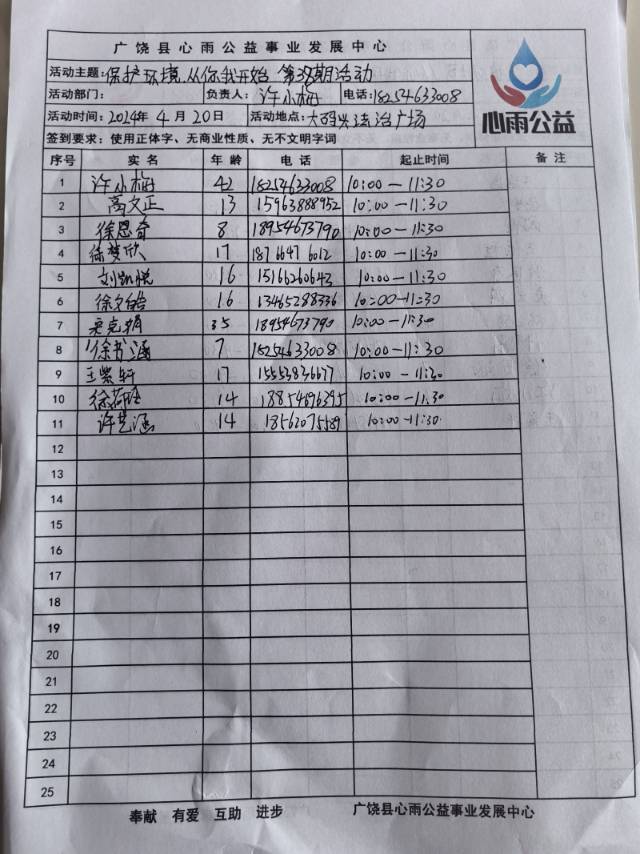 广饶县心雨公益事业发展中心
活动主题: 保护环境,从你我开始 第 期活动
活动部门: 负责人: 许小梅 电话: 18254633008
活动时间: 2024年 4 月 20日 活动地点: 大码头法治广场
签到要求: 使用正体字、无商业性质、无不文明字词
心雨公益
序号 实 名 年 龄 电 话 起止时间 备 注
1 许小梅 42 18254633008 10:00-11:30
2 高文正 13 15963888952 10:00-11:30
3 徐恩奇 8 18954673790 10:00-11:30
4 徐梦欣 17 187 6647 6012 10:00-11:30
5 刘凯悦 16 15166260643 10:00-11:30
6 徐文皓 16 13465288336 10:00-11:30
7 35 18954673790 10:00-11:30
8 徐艺涵 7 18254633008 10:00-11:30
9 王紫轩 17 10:00-11:30
10 14 18854896395 10:00-11.30
11 许艺涵 14 18562075589 10:00-11:30
12
13
14
15
16
17
18
19
20
21
22
23
24
25
奉献 有爱 互助 进步 广饶县心雨公益事业发展中心